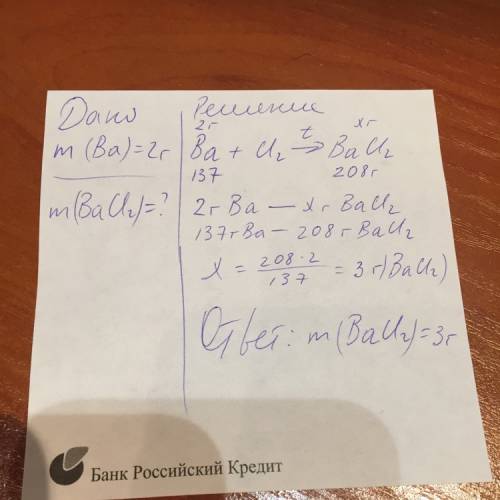 Дано
m (Ba) = 2г
m(BaCl₂) = ?
Решение
2г xг
Ba + Cl₂ t→ BaCl₂
137 208г
2г Ba — xг BaCl₂
137г Ba — 208г BaCl₂
x = 208·2/137 = 3 г)BaCl₂)
Ответ: m(BaCl₂)=3г
Банк Российский Кредит